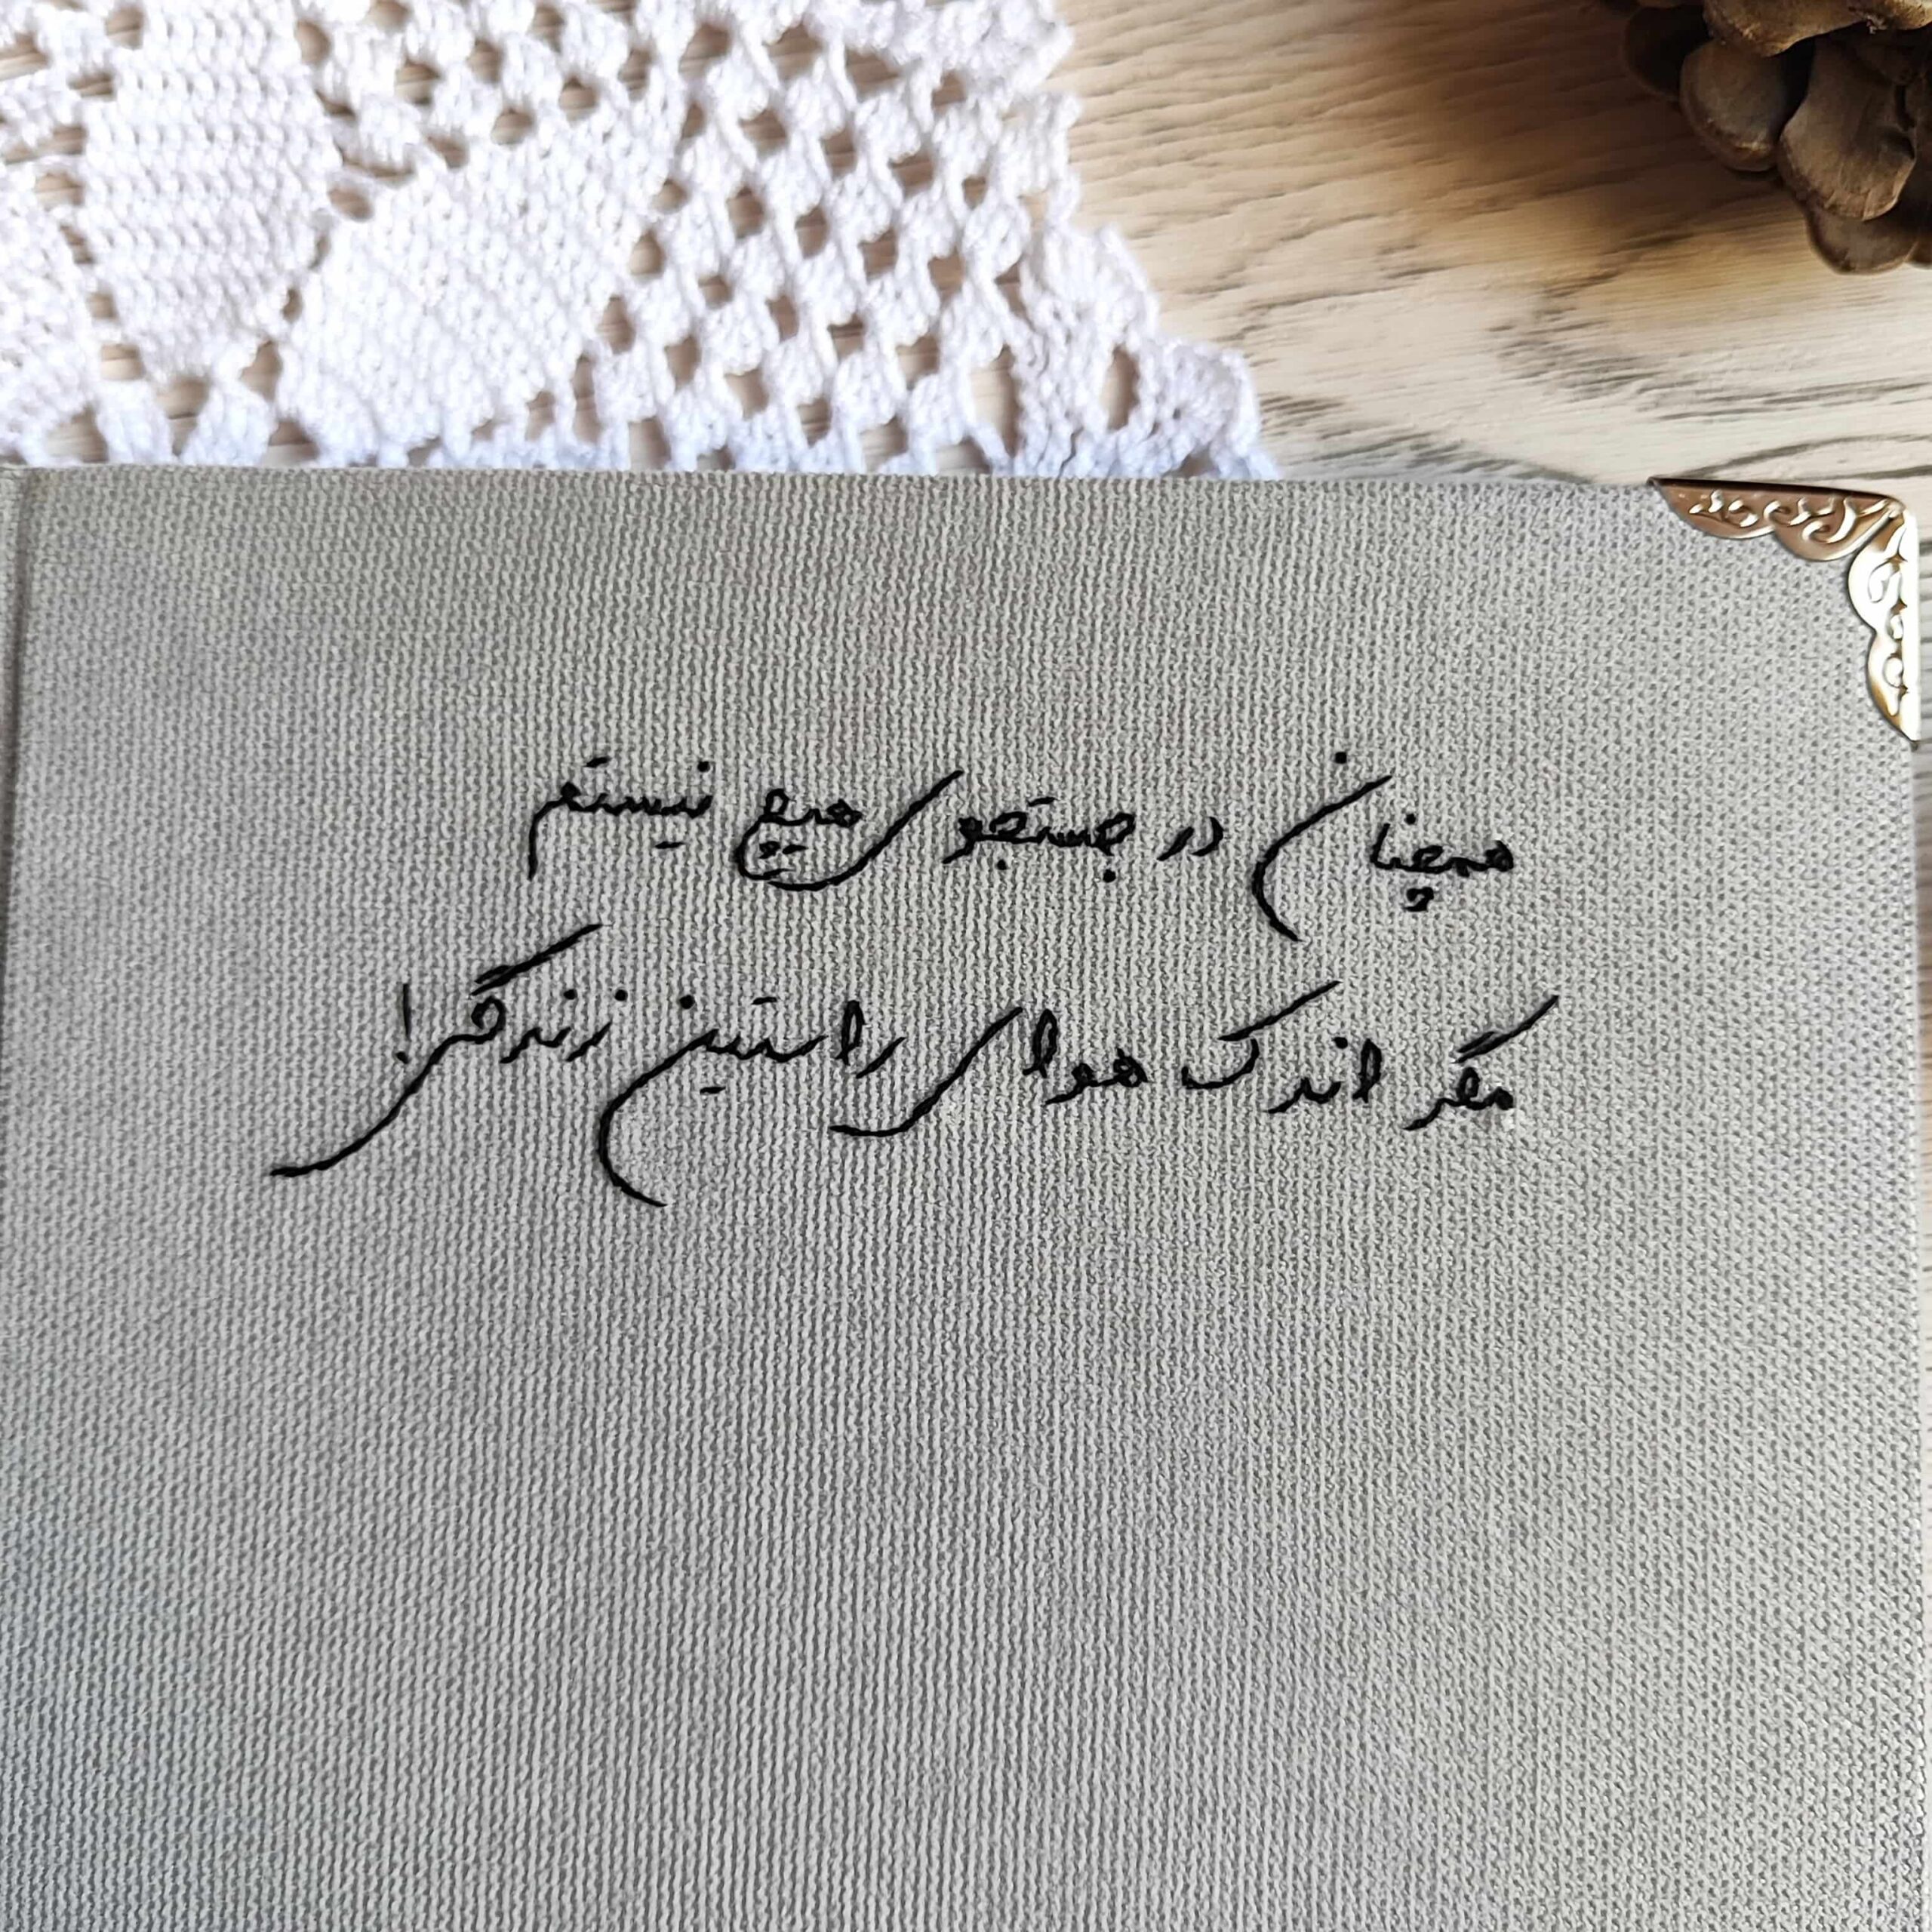 همچنان در جستجوی هیچ نیستم
مگر اندک هوای راستین زندگی!